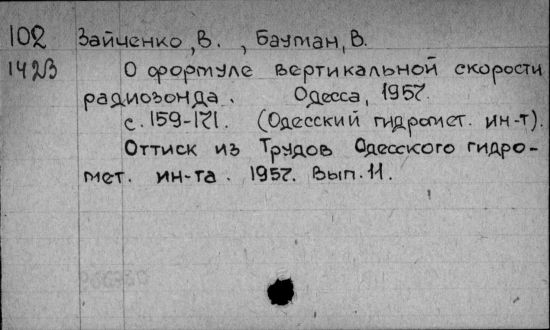 102 Зайченко, В. , Бауман, В.
1423 О формуле вертикальной скорости
радиозонда. Одесса, 1957.
с. 159-171. (Одесский гидромет. ин-т).
Оттиск из Трудов Одесского гидро-
мет. ин-та. 1957. Вып. 11.